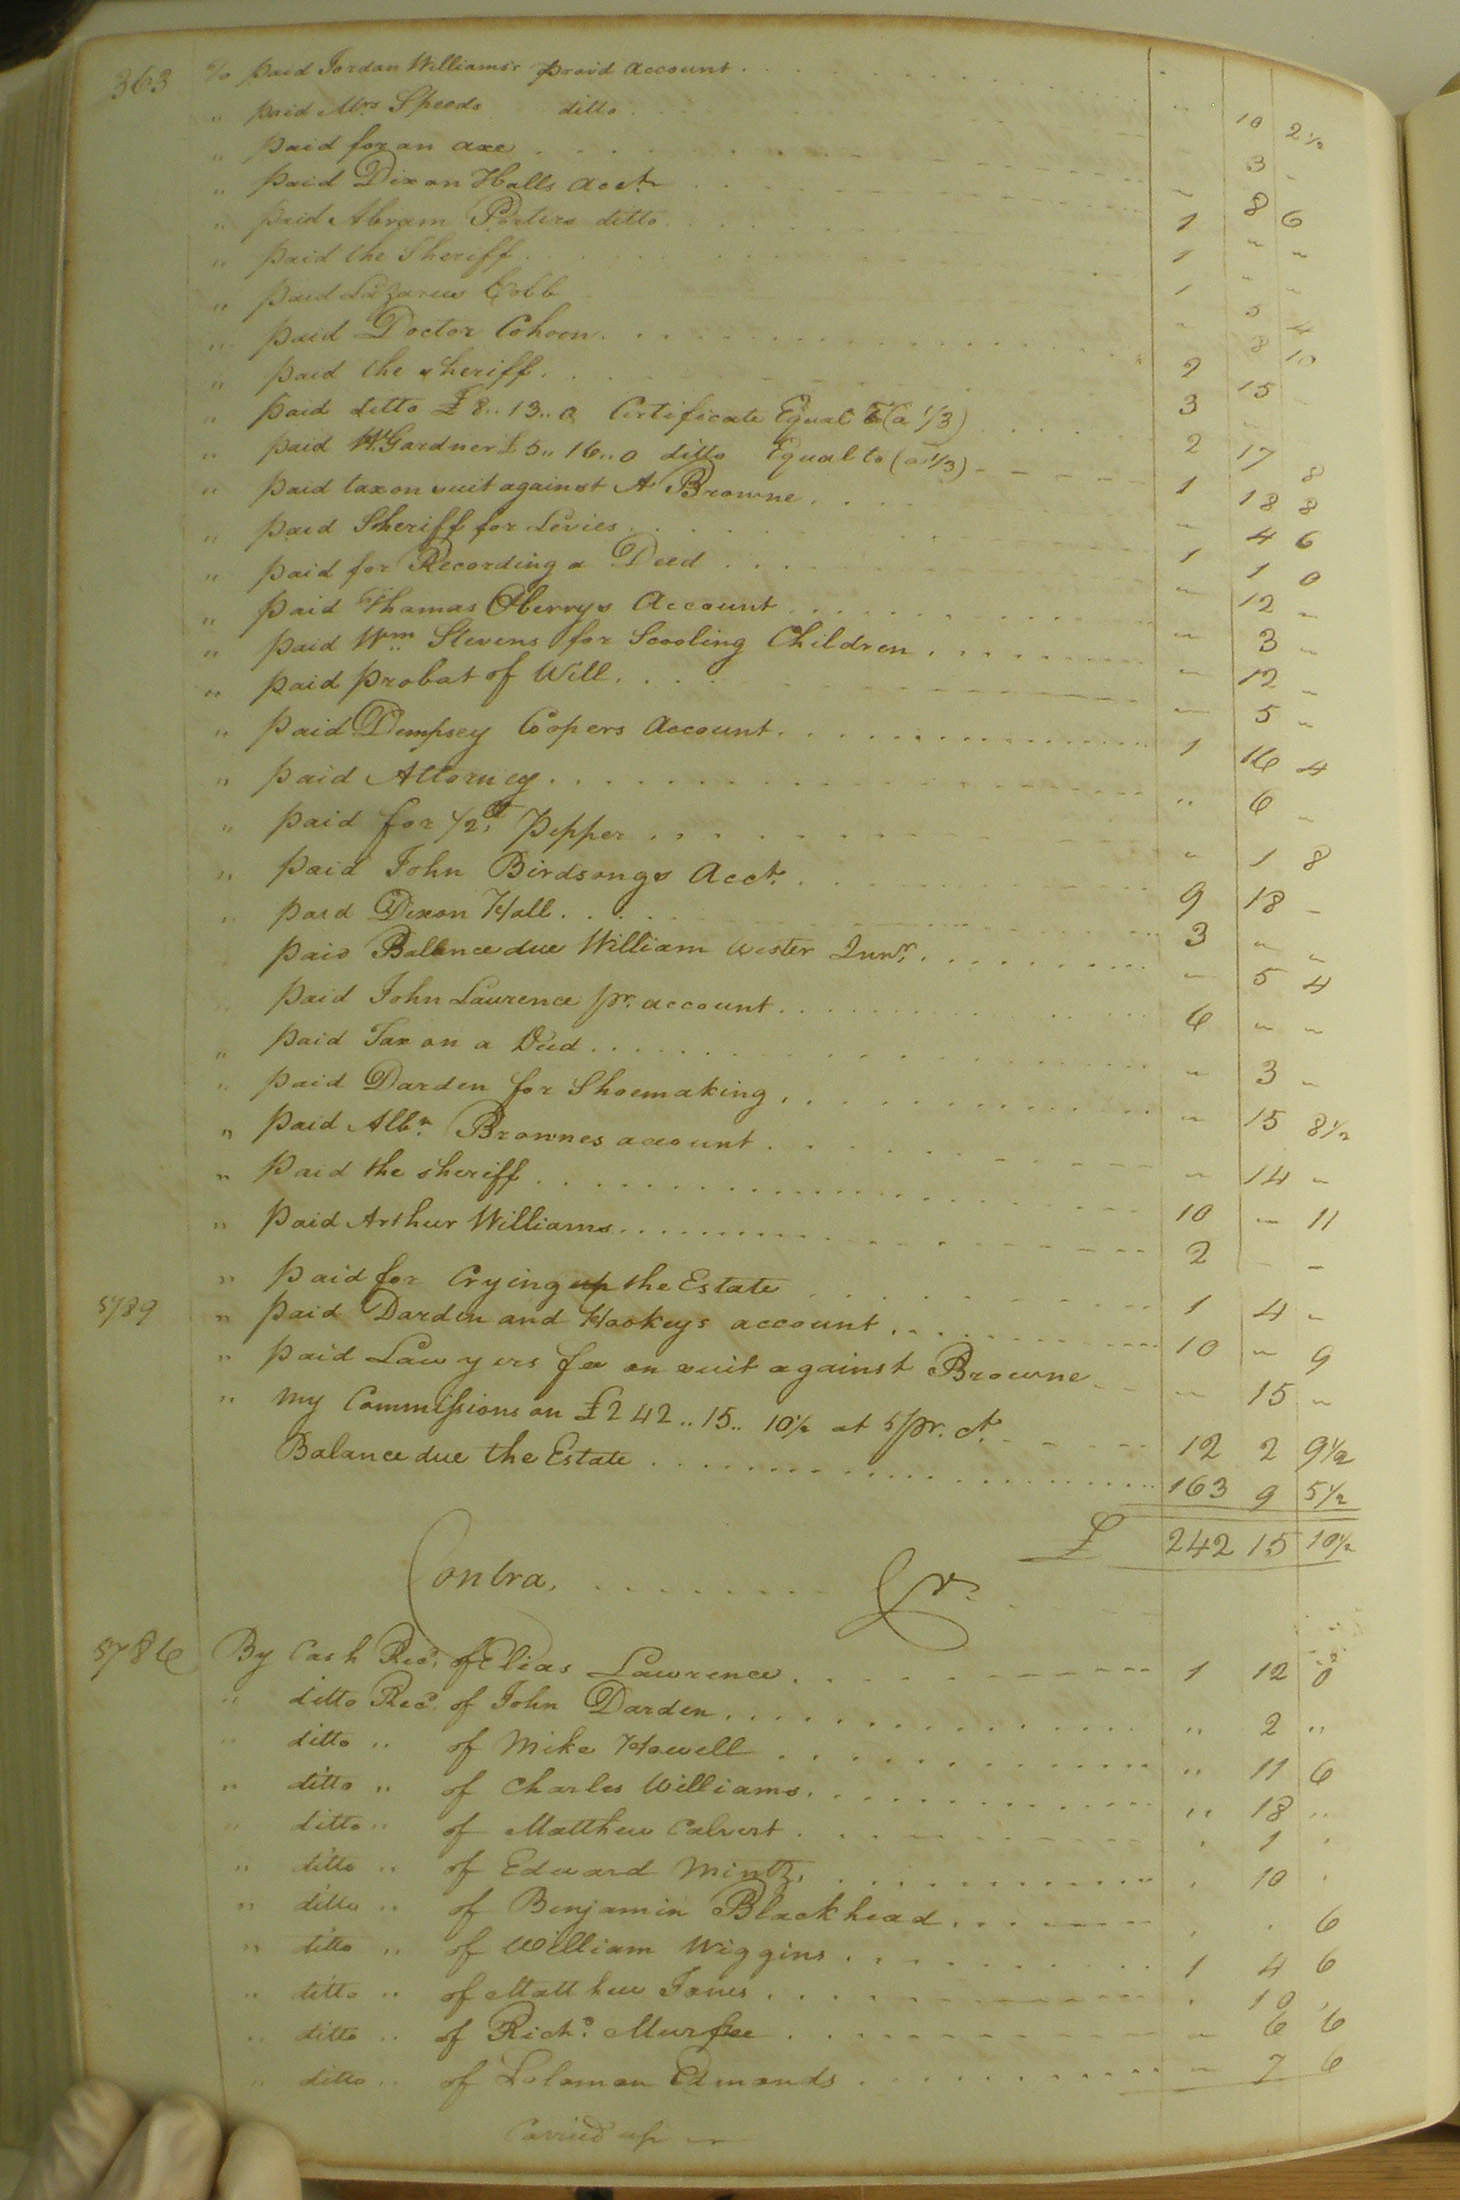 363 To paid Jordan Williams's provd account
" paid Mrs Speeds ditto " 10 2½
" paid for an axe 3 "
" paid Dixon Halls acct " 8 6
" paid Abram Porters ditto 1 " "
" paid the Sheriff 1 " "
" paid Lazarus Cobb 1 5 4
" paid Doctor Cohoon " 8 10
" paid the sheriff 2 15
" paid ditto £8..13..0 Certificate Equal to (a 1/3) 3 "
" paid W. Gardner £5..16..0 ditto Equal to (a 1/3) 2 17 8
" paid tax on suit against A Browne 1 18 8
" paid Sheriff for Levies " 4 6
" paid for Recording a Deed 1 1 0
" paid Thomas Oberrys Account " 12 "
" paid Wm Stevens for Scooling Children " 3 "
" paid probat of Will " 12 "
" paid Dempsey Coopers Account " 5 "
" paid Attorney 1 16 4
" paid for ½ Pepper " 6 "
" paid John Birdsongs Acct. " 1 8
" paid Dixon Hall 9 18 "
paid Ballence due William Wester Junr. 3 " "
paid John Laurence pr. account " 5 4
" paid Tax on a Deed 6 " "
" paid Darden for Shoemaking " 3 "
" paid Albn. Brownes account " 15 8½
" paid the sheriff " 14 "
" paid Arthur Williams 10 " 11
2 " "
" paid for Crying up the Estate 1 4 "
5789 " paid Darden and Hookeys account 10 " 9
" paid Lawyers fee on suit against Browne " 15 "
" my Commissions on £242..15..10½ at 5 pr. ct. 12 2 9½
Balance due the Estate 163 9 5½
£ 242 15 10½
Contra, Cr.
5786 By Cash Recd. of Elias Lawrence 1 12 0
" ditto Recd. of John Darden " 2 "
" ditto " of Mike Howell " 11 6
" ditto " of Charles Williams " 18 "
" ditto " of Matthew Calvert " 1 "
" ditto " of Edward Mintz, " 10 "
" ditto " of Benjamin Blackhead " " 6
" ditto " of William Wiggins 1 4 6
" ditto " of Matthew Jones " 10 "
" ditto " of Richd. Murfee " 6 6
" ditto " of Soloman Edmonds " 7 6
Carried up